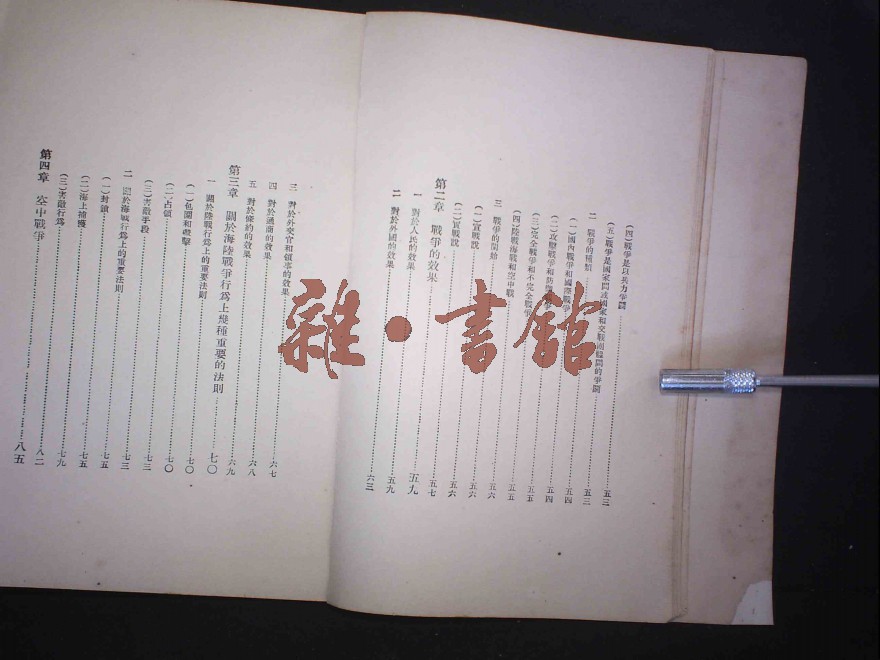 (四)戰爭是以兵力爭鬪……五三
(五)戰爭是國家間或國家和交戰團體間的爭鬪……五三
二 戰爭的種類……五三
(一)國內戰爭和國際戰爭……五四
(二)攻擊戰爭和防禦戰爭……五四
(三)完全戰爭和不完全戰爭……五五
(四)陸戰海戰和空中戰……五五
三 戰爭的開始……五六
(一)宣戰說……五六
(二)實戰說……五六
第二章 戰爭的效果……五七
一 對於人民的效果……五九
二 對於外國的效果……五九
六三
三 對於外交官和領事的效果……六七
四 對於通商的效果……六八
五 對於條約的效果……六九
第三章 關於海陸戰爭行爲上幾種重要的法則……七〇
一 關於陸戰行爲上的重要法則……七〇
(一)包圍和礮擊……七〇
(二)占領……七三
(三)害敵手段……七三
二 關於海戰行爲上的重要法則……七五
(一)封鎖……七五
(二)海上捕獲……七九
(三)害敵行爲……八二
第四章 空中戰爭……八五
雜•書館